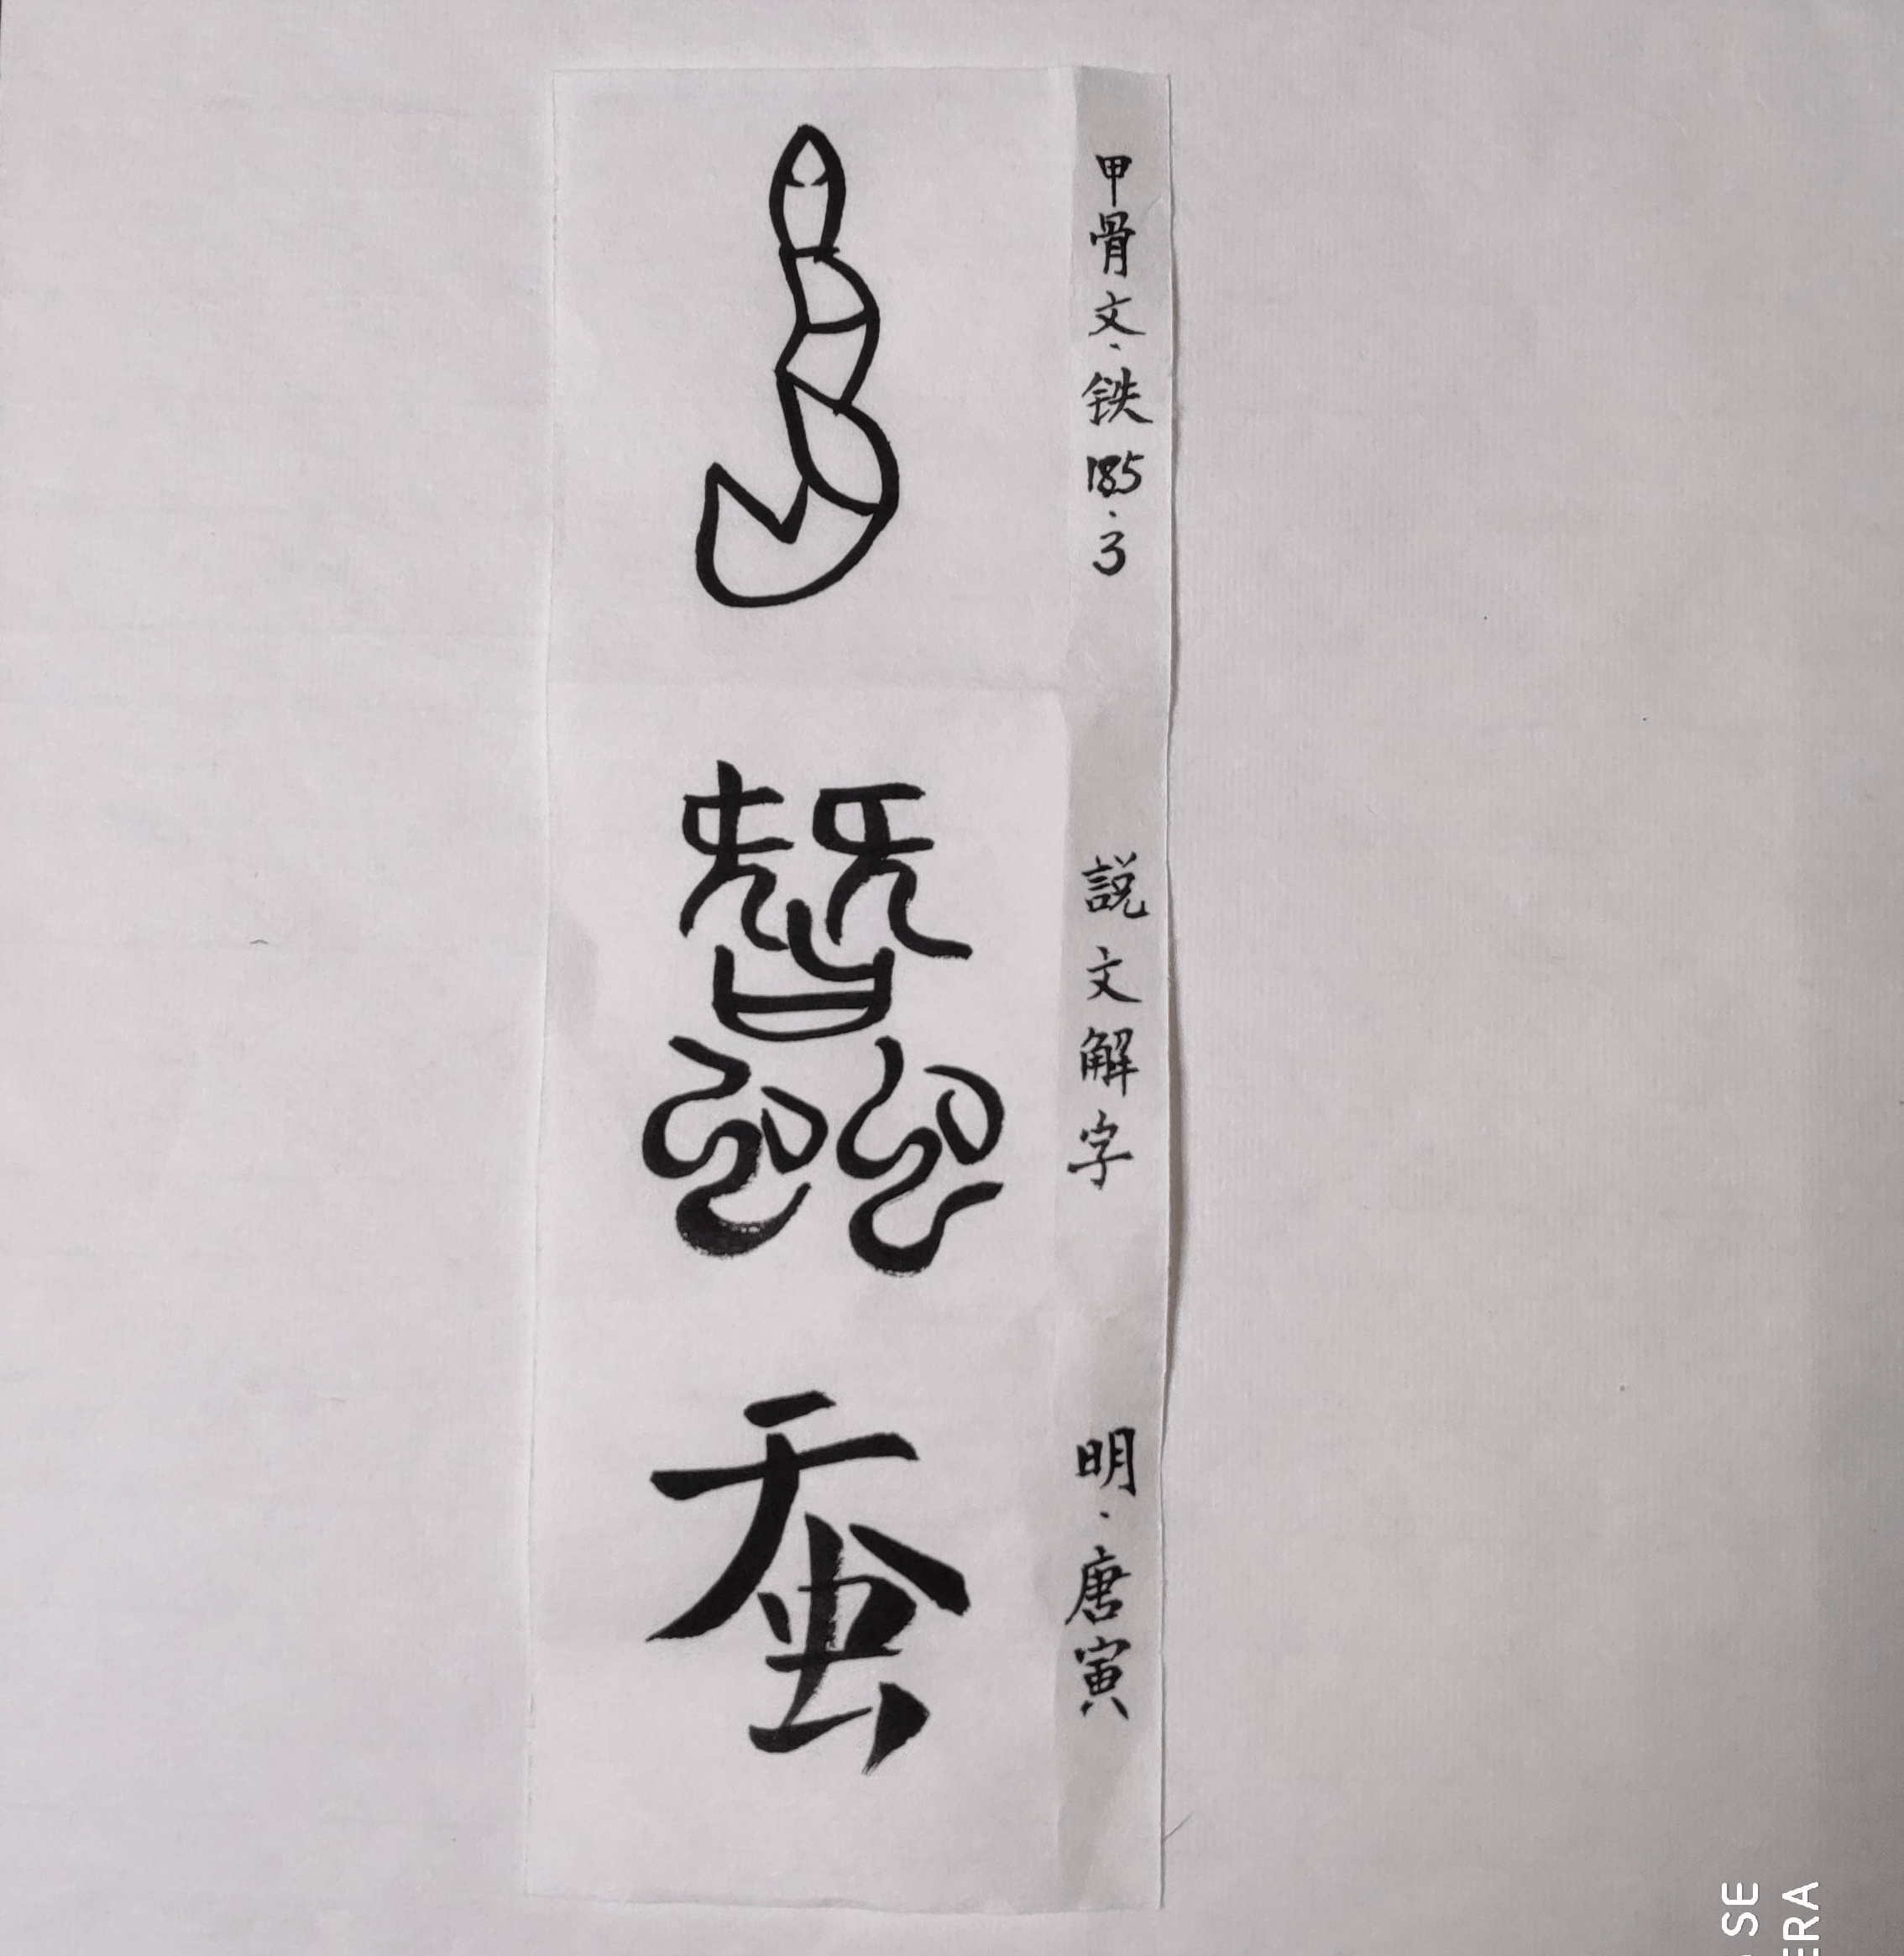 甲骨文·铁185·3
蠶
説文解字
蚕
明·唐寅
SE
ERA